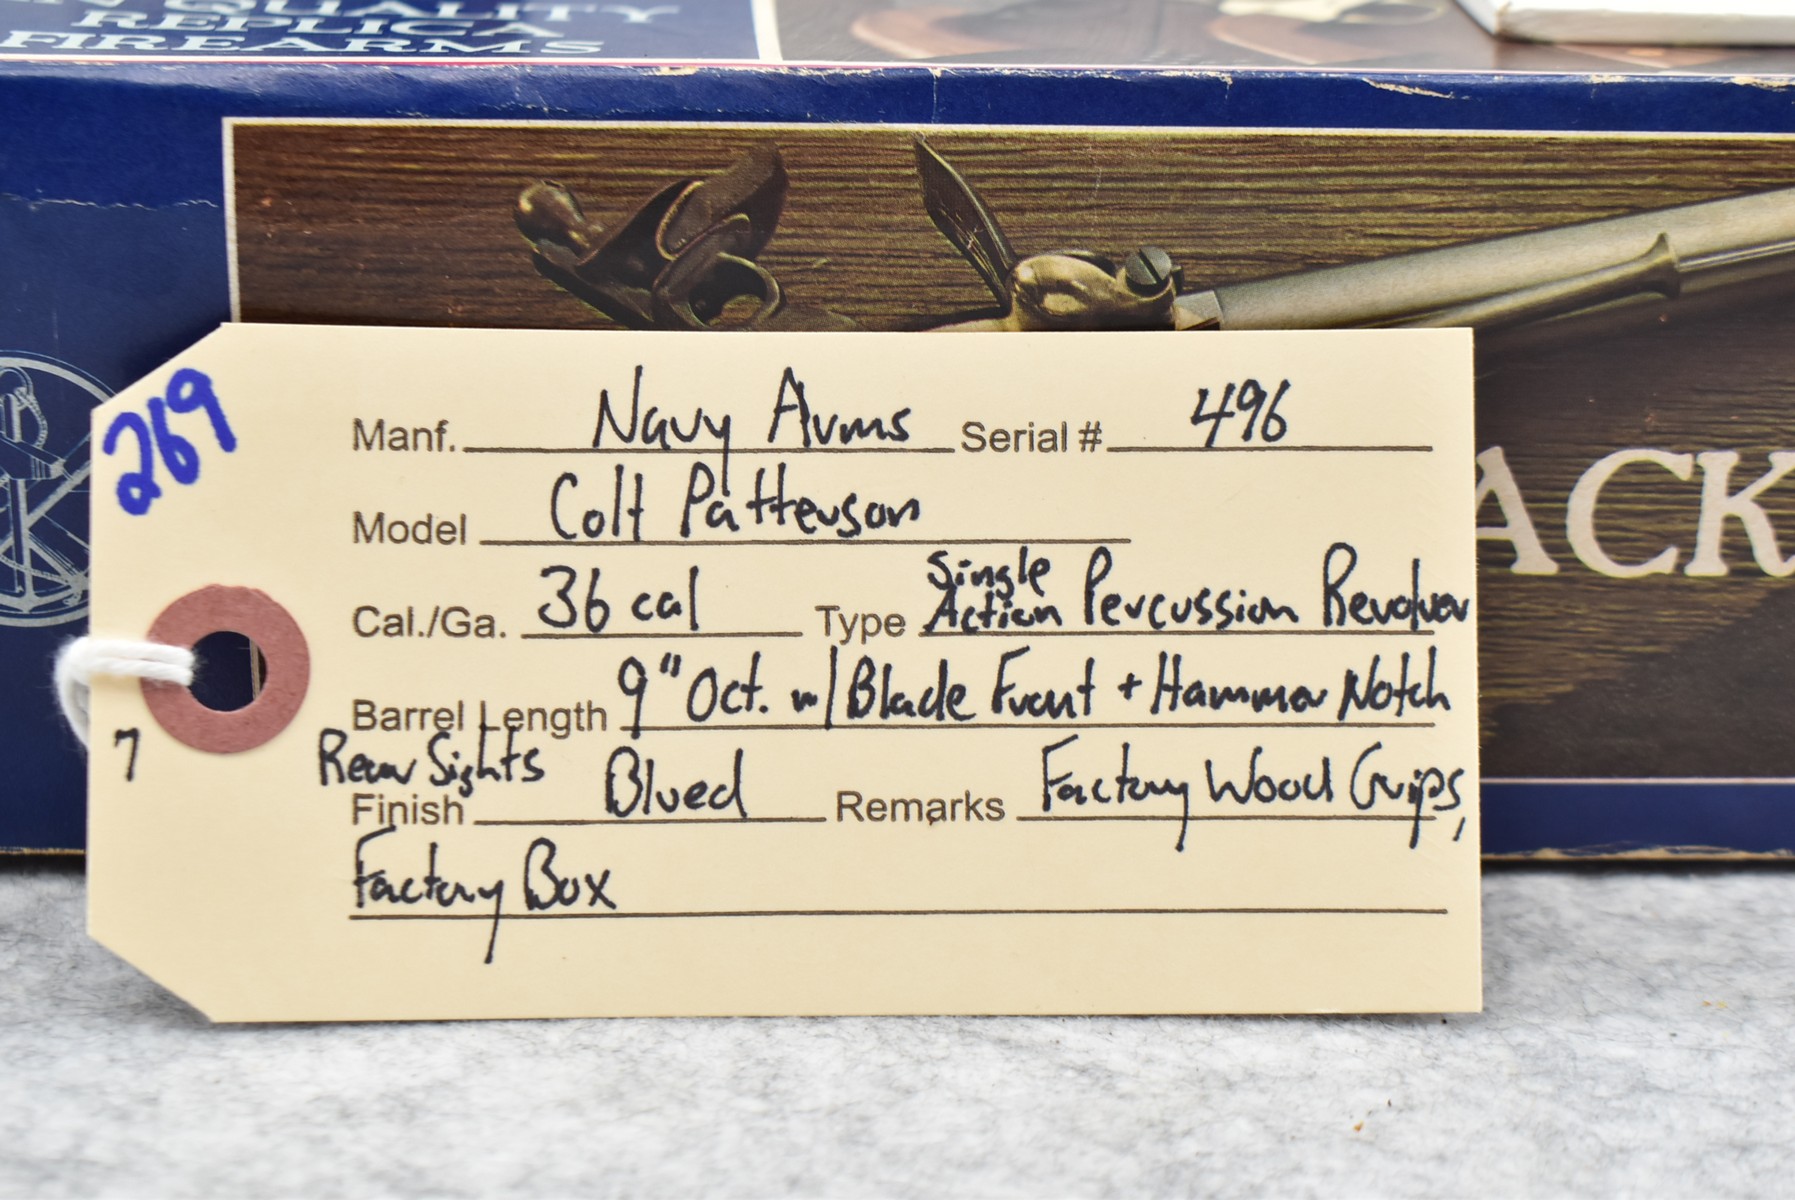 QUALITY
REPLICA
FIREARMS
ACK
269
Manf. Navy Arms Serial # 496
Model Colt Patterson
Cal./Ga. 36 cal Type Single Action Percussion Revolver
Barrel Length 9" Oct. w/ Blade Front + Hammer Notch
Rear Sights
7
Finish Blued Remarks Factory Wood Grips,
Factory Box